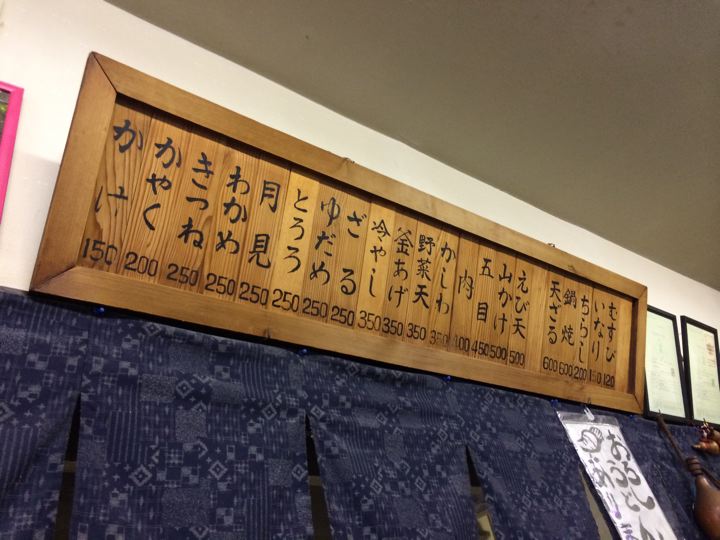 むすび 120
いなり
ちらし 200
鍋焼 600
天ざる 600
えび天 500
山かけ 500
五目 450
肉 400
かしわ 350
野菜天 350
釜あげ 350
冷やし 350
ざる 250
ゆだめ 250
とろろ 250
月見 250
わかめ 250
きつね 250
かやく 200
かけ 150